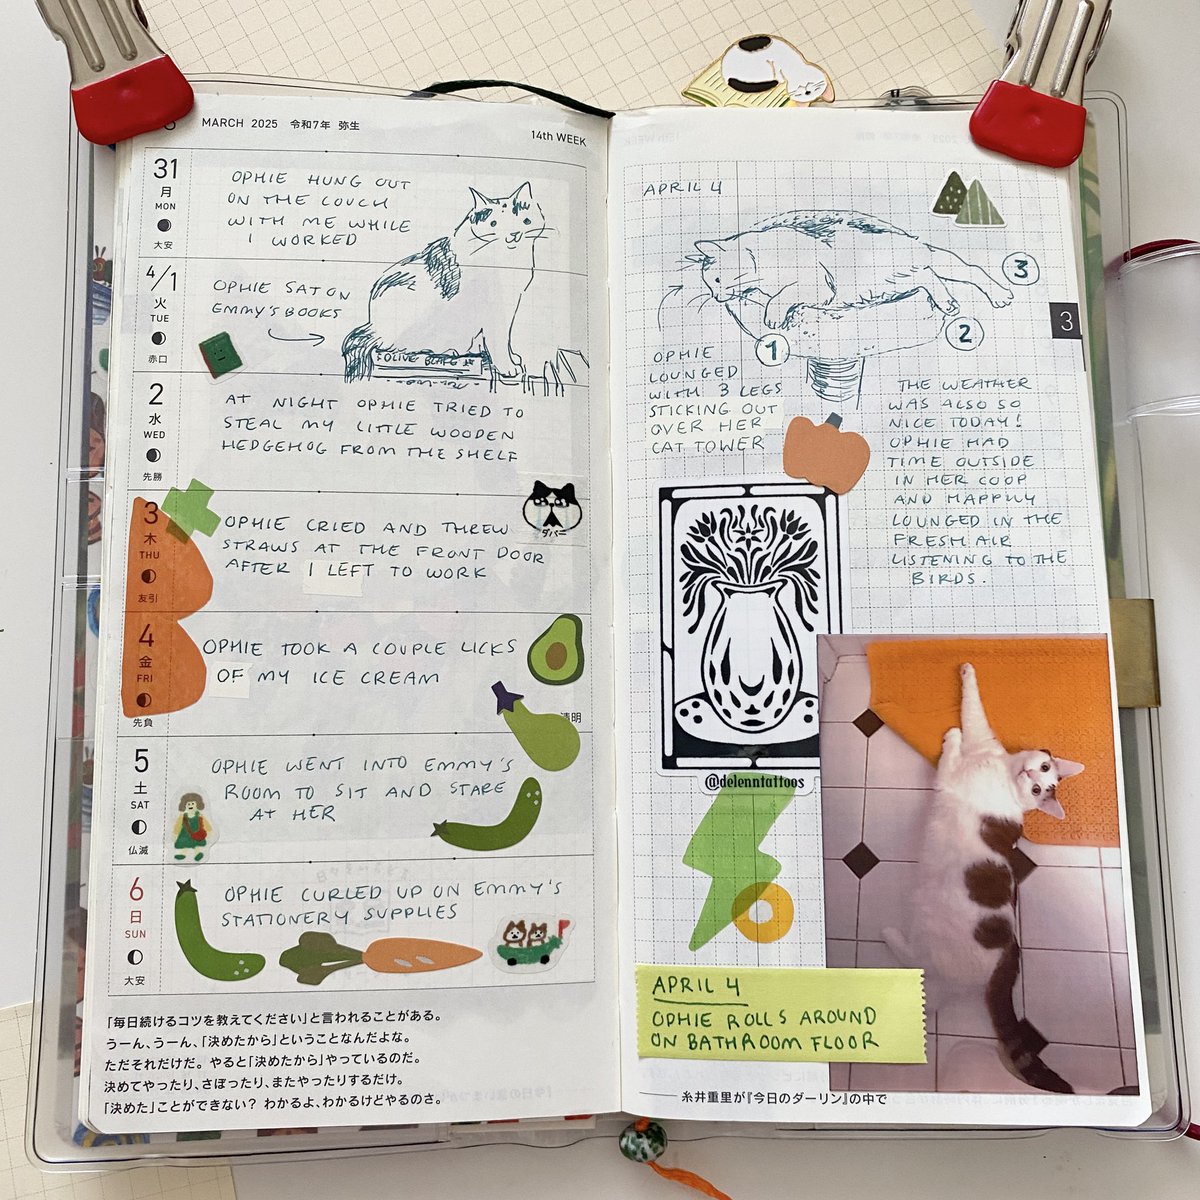 MARCH 2025 令和7年 弥生
14th WEEK
31
月
MON
大安
OPHIE HUNG OUT
ON THE COUCH
WITH ME WHILE
I WORKED
4/1
火
TUE
赤口
OPHIE SAT ON
EMMY'S BOOKS
OLIVE
2
水
WED
先勝
AT NIGHT OPHIE TRIED TO
STEAL MY LITTLE WOODEN
HEDGEHOG FROM THE SHELF
3
木
THU
友引
OPHIE CRIED AND THREW
STRAWS AT THE FRONT DOOR
AFTER I LEFT TO WORK
4
金
FRI
先負
OPHIE TOOK A COUPLE LICKS
OF MY ICE CREAM
清明
5
土
SAT
仏滅
OPHIE WENT INTO EMMY'S
ROOM TO SIT AND STARE
AT HER
6
日
SUN
大安
OPHIE CURLED UP ON EMMY'S
STATIONERY SUPPLIES
「毎日続けるコツを教えてください」と言われることがある。
うーん、うーん、「決めたから」ということなんだよな。
ただそれだけだ。やると「決めたから」やっているのだ。
決めてやったり、さぼったり、またやったりするだけ。
「決めた」ことができない? わかるよ、わかるけどやるのさ。
APRIL 4
1
2
3
3
OPHIE
LOUNGED
WITH 3 LEGS
STICKING OUT
OVER HER
CAT TOWER
THE WEATHER
WAS ALSO SO
NICE TODAY!
OPHIE HAD
TIME OUTSIDE
IN HER COOP
AND HAPPILY
LOUNGED IN THE
FRESH AIR
LISTENING TO THE
BIRDS.
@delenntattoos
APRIL 4
OPHIE ROLLS AROUND
ON BATHROOM FLOOR
糸井重里が『今日のダーリン』の中で